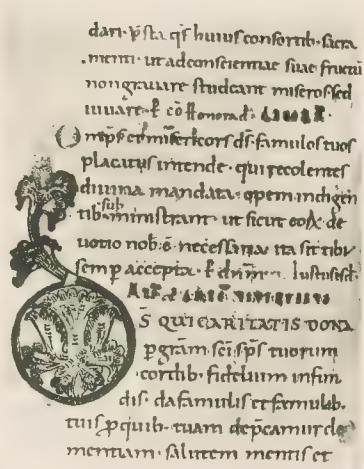 dari· p̄sta q̄s huius consortib· sacra
menti· ut ad conscientiae suae fructū
non gravare studeant miseros· sed
iuuare·
Omp̄s et misericors d̄s· famulos tuos
placatus intende· qui recolentes
diuina mandata· opem indigen
tib· subministrant· ut sicut eoꝝ de
uotio nob· ē· necessaria· ita sit tibi
semp accepta·
D̄S QUI CARITATIS DONA
p grām· sc̄i· sp̄s tuorum
cordib· fidelium infun
dis· da famulis et famulab·
tuis p quib· tuam dep̄camur cle
mentiam· salutem mentis et